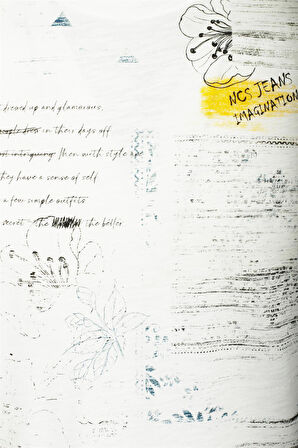 NCS JEANS
IMAGINATION
dressed up and glamorous,
people dress in their days off
most intriguing Then with style are
they have a sense of self
a few simple outfits
secret - the the better